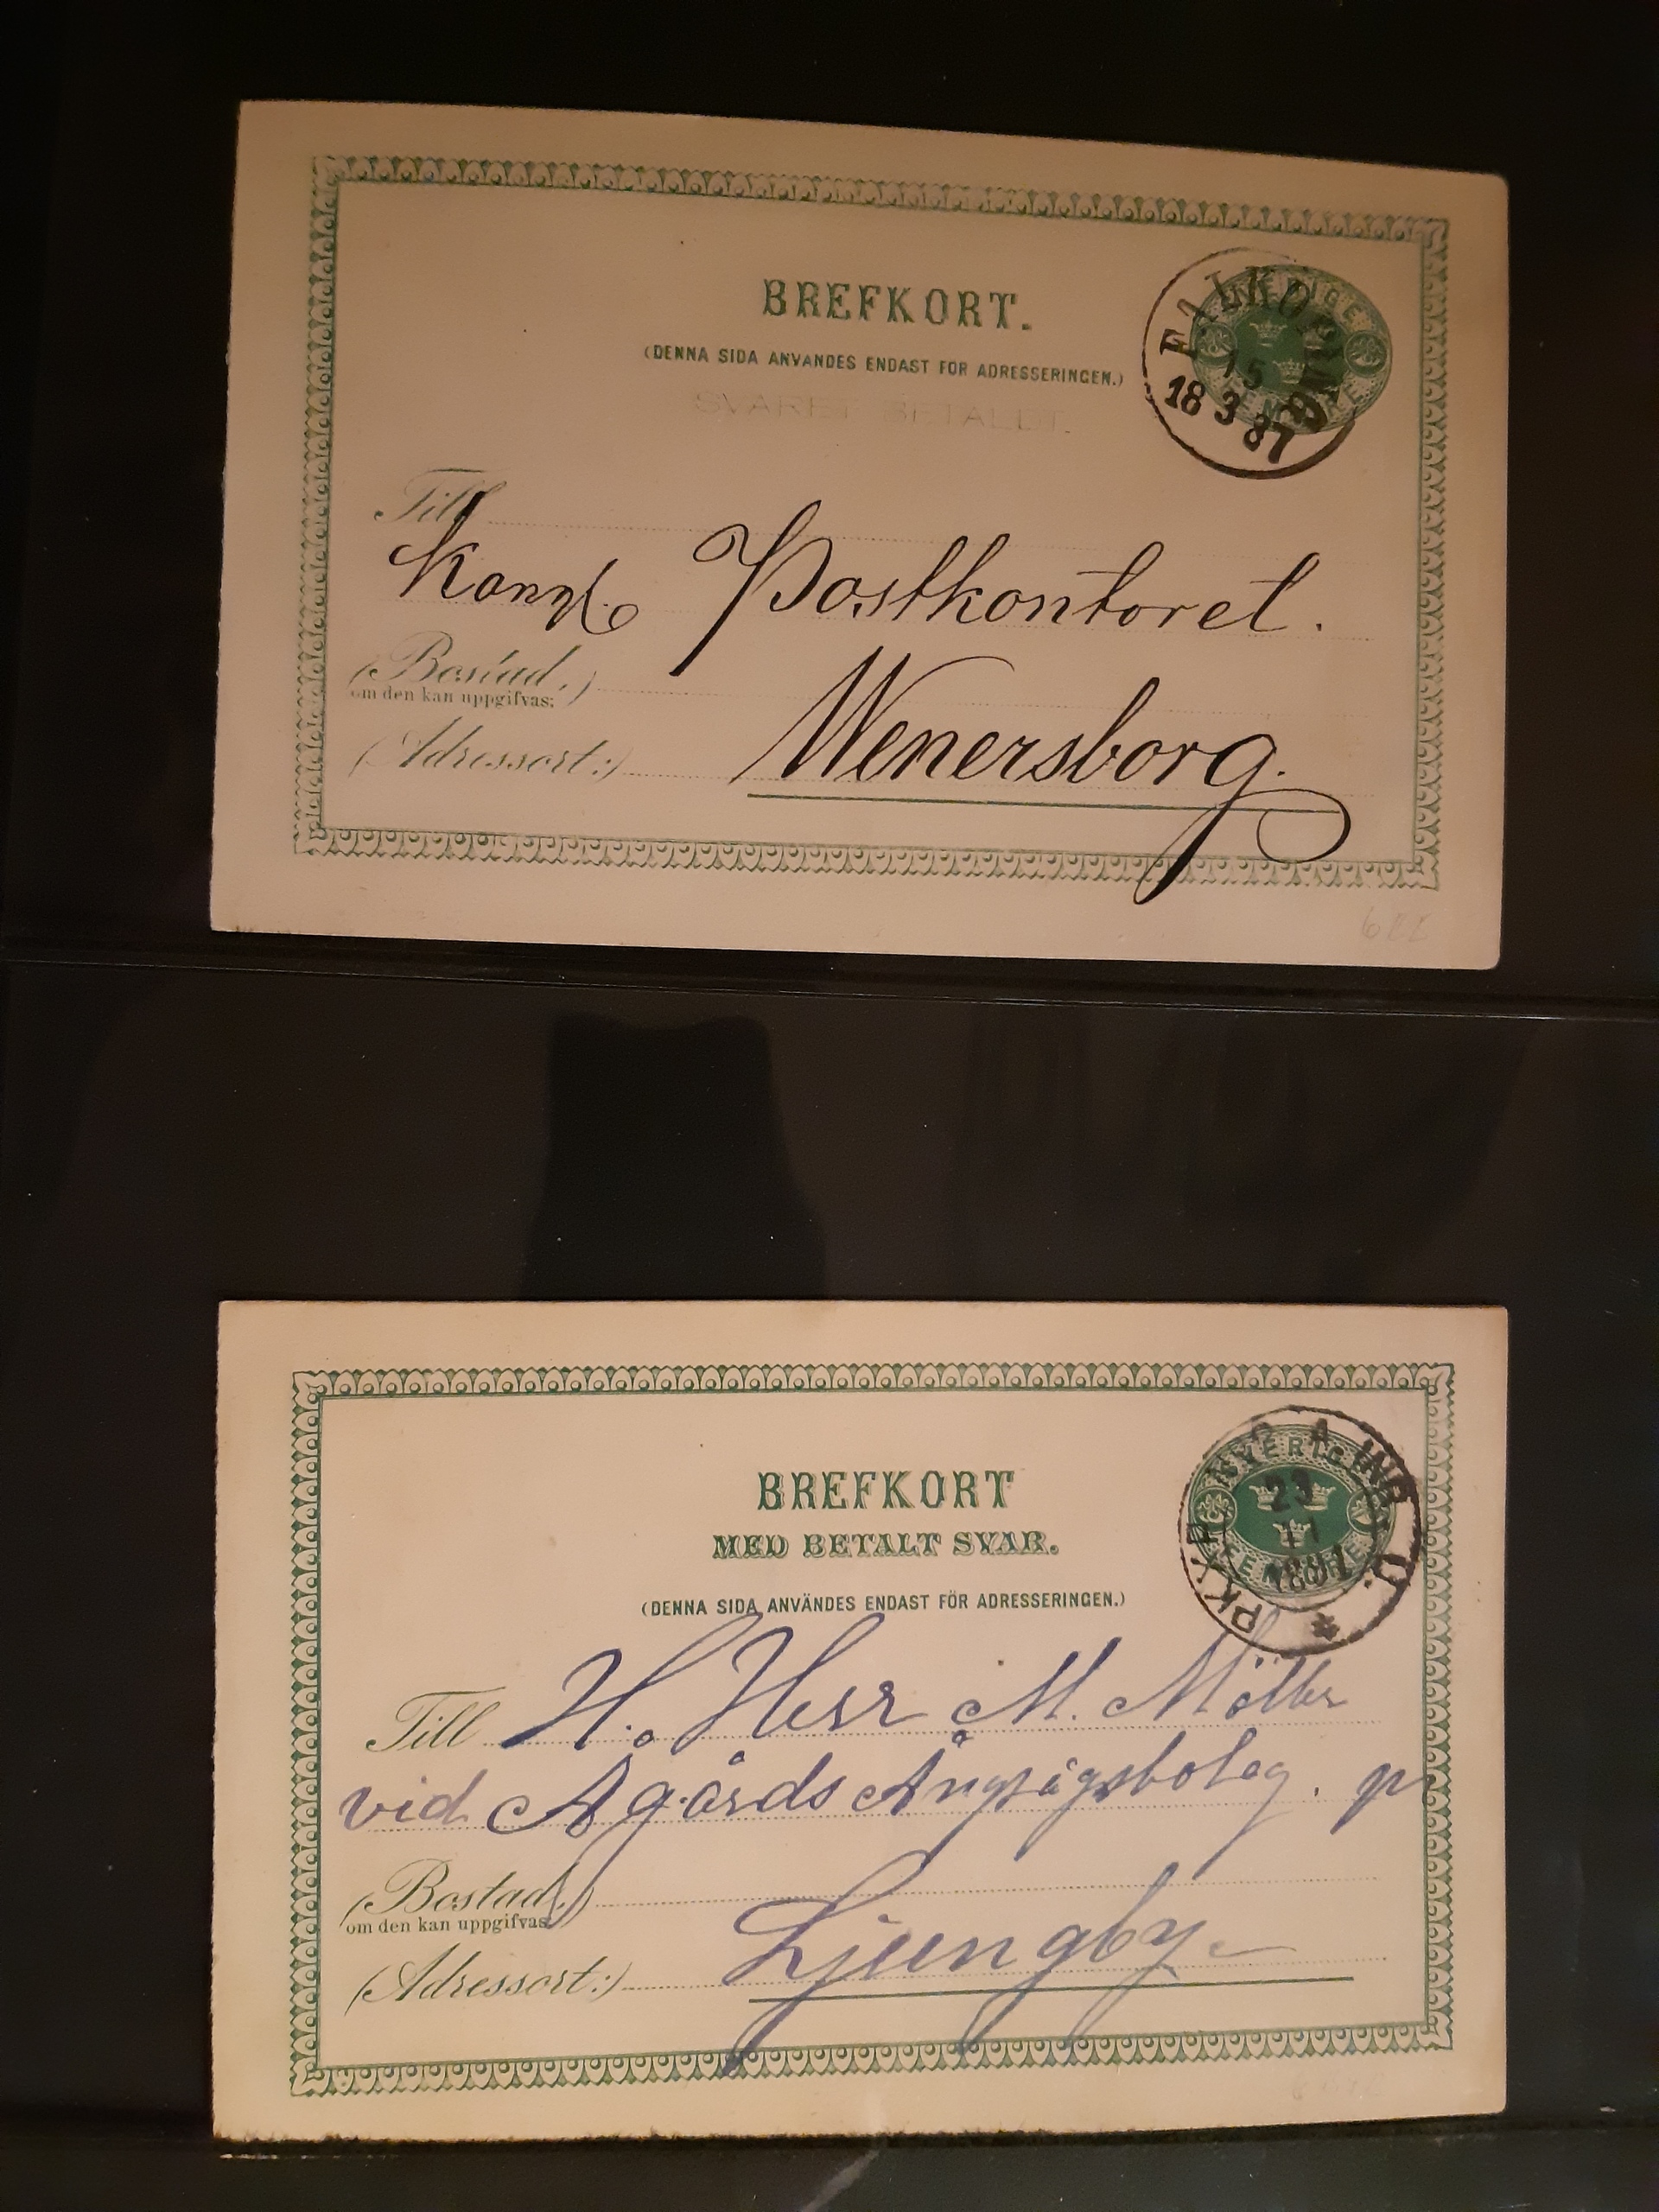 BREFKORT.
(DENNA SIDA ANVANDES ENDAST FOR ADRESSERINGEN.)
SVARET BETALDT.
SVERIGE
FEM ÖRE
FALKÖPING
15
18 3 87
Till
Kongl. Postkontoret.
(Bostad,)
om den kan uppgifvas:
(Adressort:)
Wenersborg.
BREFKORT
MED BETALT SVAR.
(DENNA SIDA ANVÄNDES ENDAST FÖR ADRESSERINGEN.)
SVERIGE
FEM ÖRE
PKXP
23
11
1891
Till H. Herr M. Möller
vid Agårds Ångsågsbolag. pr
(Bostad,)
om den kan uppgifvas
(Adressort:)
Ljungby